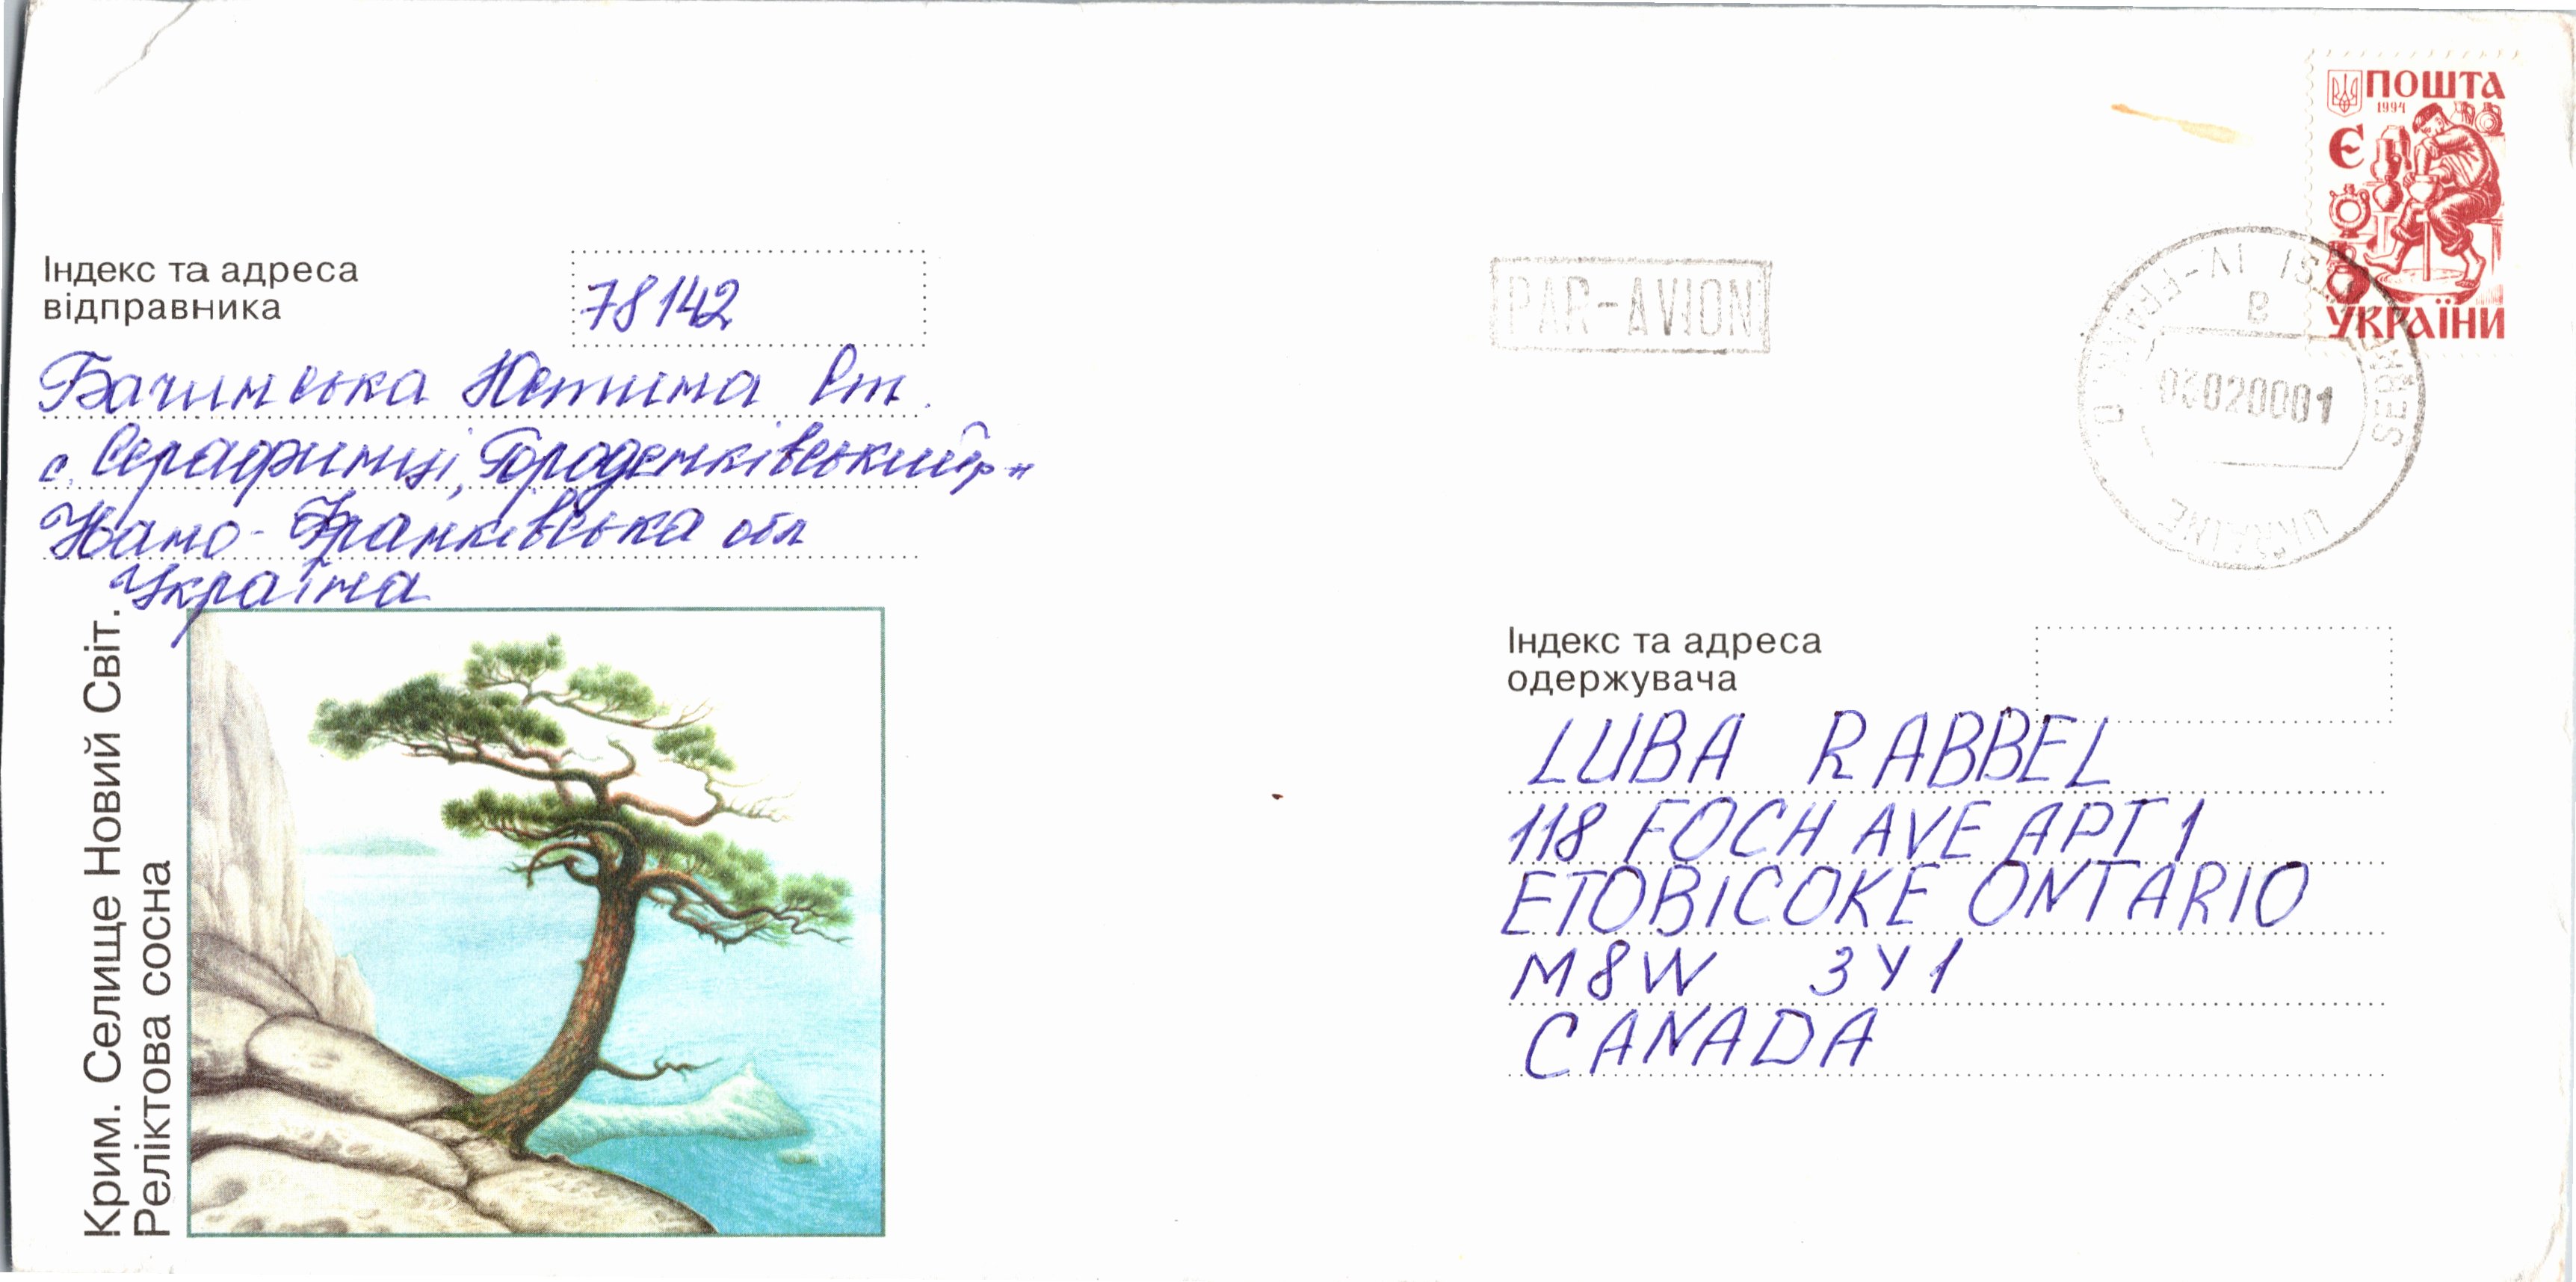 ПОШТА
1994
Є
УКРАЇНИ
Індекс та адреса
відправника
78142
Бачинська Юстина Ст.
с. Серафинці, Городенківський р-н
Івано-Франківська обл
Україна
PAR-AVION
В
UKRAINE
Крим. Селище Новий Світ.
Реліктова сосна
Індекс та адреса
одержувача
LUBA RABBEL
118 FOCH AVE APT 1
ETOBICOKE ONTARIO
M8W 3Y1
CANADA